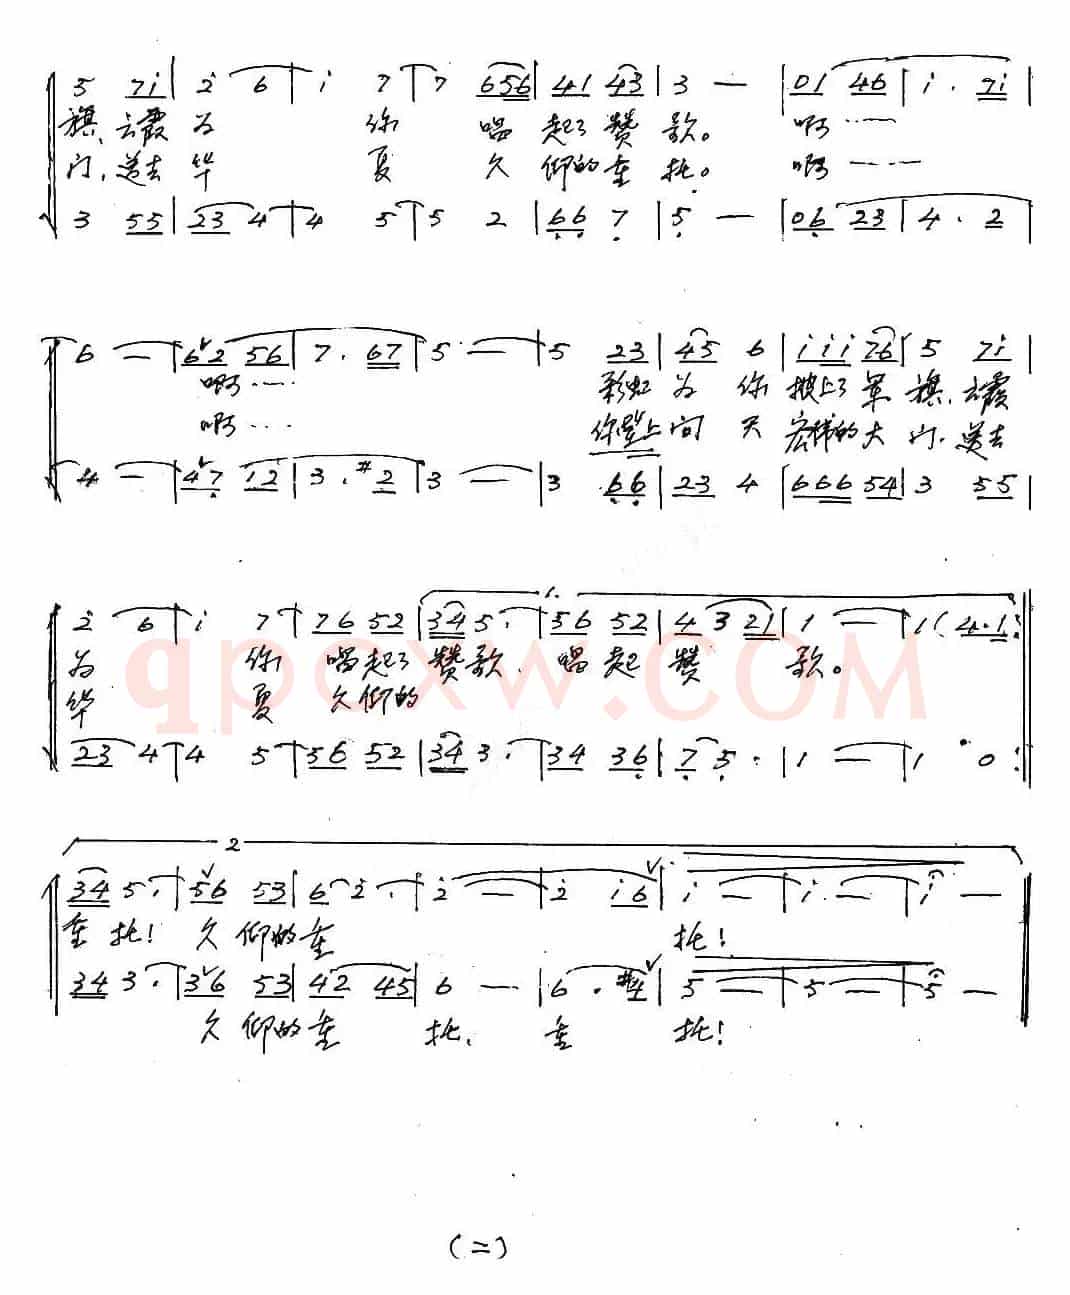 5 7i | 2 6 | i 7 | 7 656 | 41 43 | 3 — | 01 46 | i. 7i |
旗，云霞为 你 唱起了赞歌。 啊……
门，送去华 夏 久仰的重托。 啊……
3 55 | 23 4 | 4 5 | 5 2 | 66 7 | 5 — | 06 23 | 4. 2 |
6 — | 62 56 | 7. 67 | 5 — | 5 23 | 45 6 | iii 76 | 5 7i |
啊…… 彩虹为你披上了军旗，云霞
啊…… 你登上问天宏伟的大门，送去
4 — | 47 12 | 3. #2 | 3 — | 3 66 | 23 4 | 666 54 | 3 55 |
1.
2 6 | i 7 | 76 52 | 34 5. | 56 52 | 4 3 21 | 1 — | 1 (4.1 :
为 你 唱起了赞歌，唱起赞 歌。
华 夏 久仰的
23 4 | 4 5 | 56 52 | 34 3. | 34 36 | 7 5. | 1 — | 1 0 :
qpcxw.COM
2
34 5. | 56 53 | 6 2. | 2 — | 2 i6 | i — | i. — | i —
重托！久仰的重 托！
34 3. | 36 53 | 42 45 | 6 — | 6. #4 | 5 — | 5 — | 5 —
久仰的重 托，重 托！
(二)